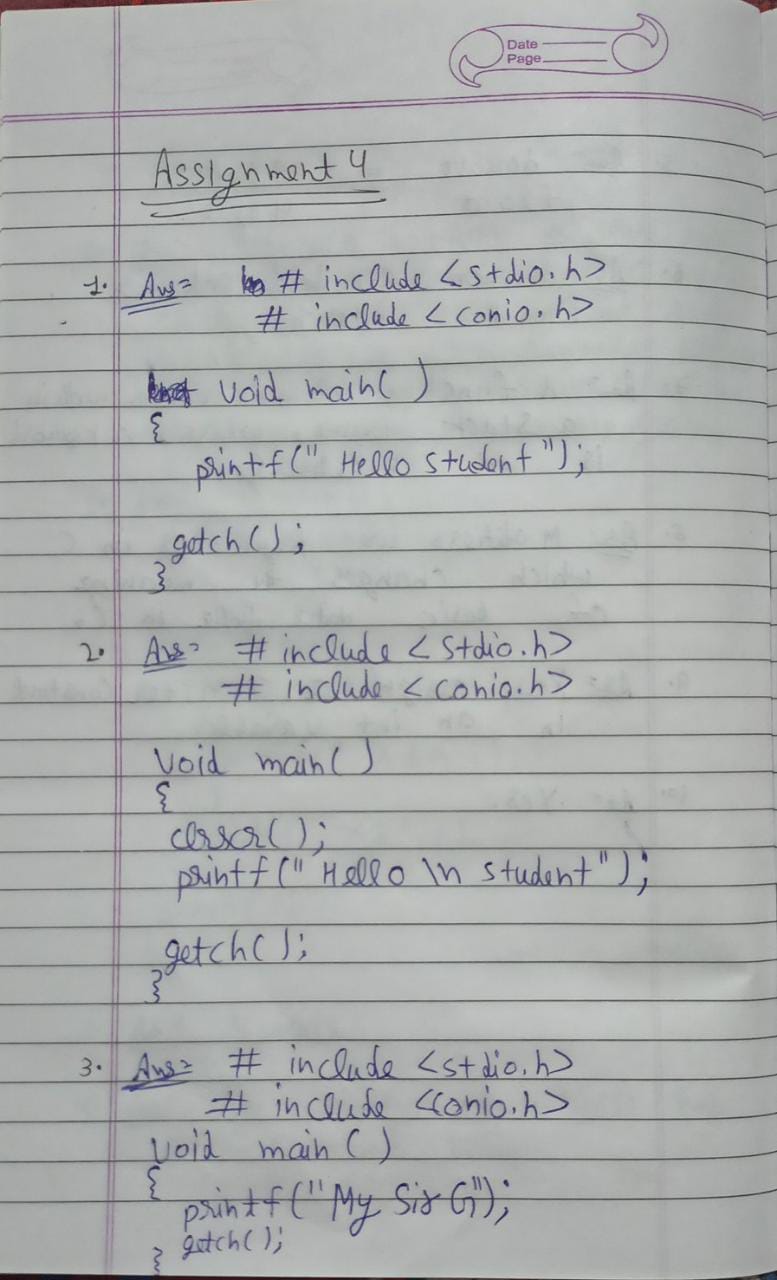 Date
Page
Assignment 4
1. Ans= # include <stdio.h>
# include <conio.h>
void main( )
{
printf(" Hello student ");
getch( );
}
2. Ans= # include <stdio.h>
# include <conio.h>
void main( )
{
clrscr( );
printf(" Hello \n student");
getch( );
}
3. Ans= # include <stdio.h>
# include <conio.h>
void main ( )
{
printf("My Sir G");
getch( );
}